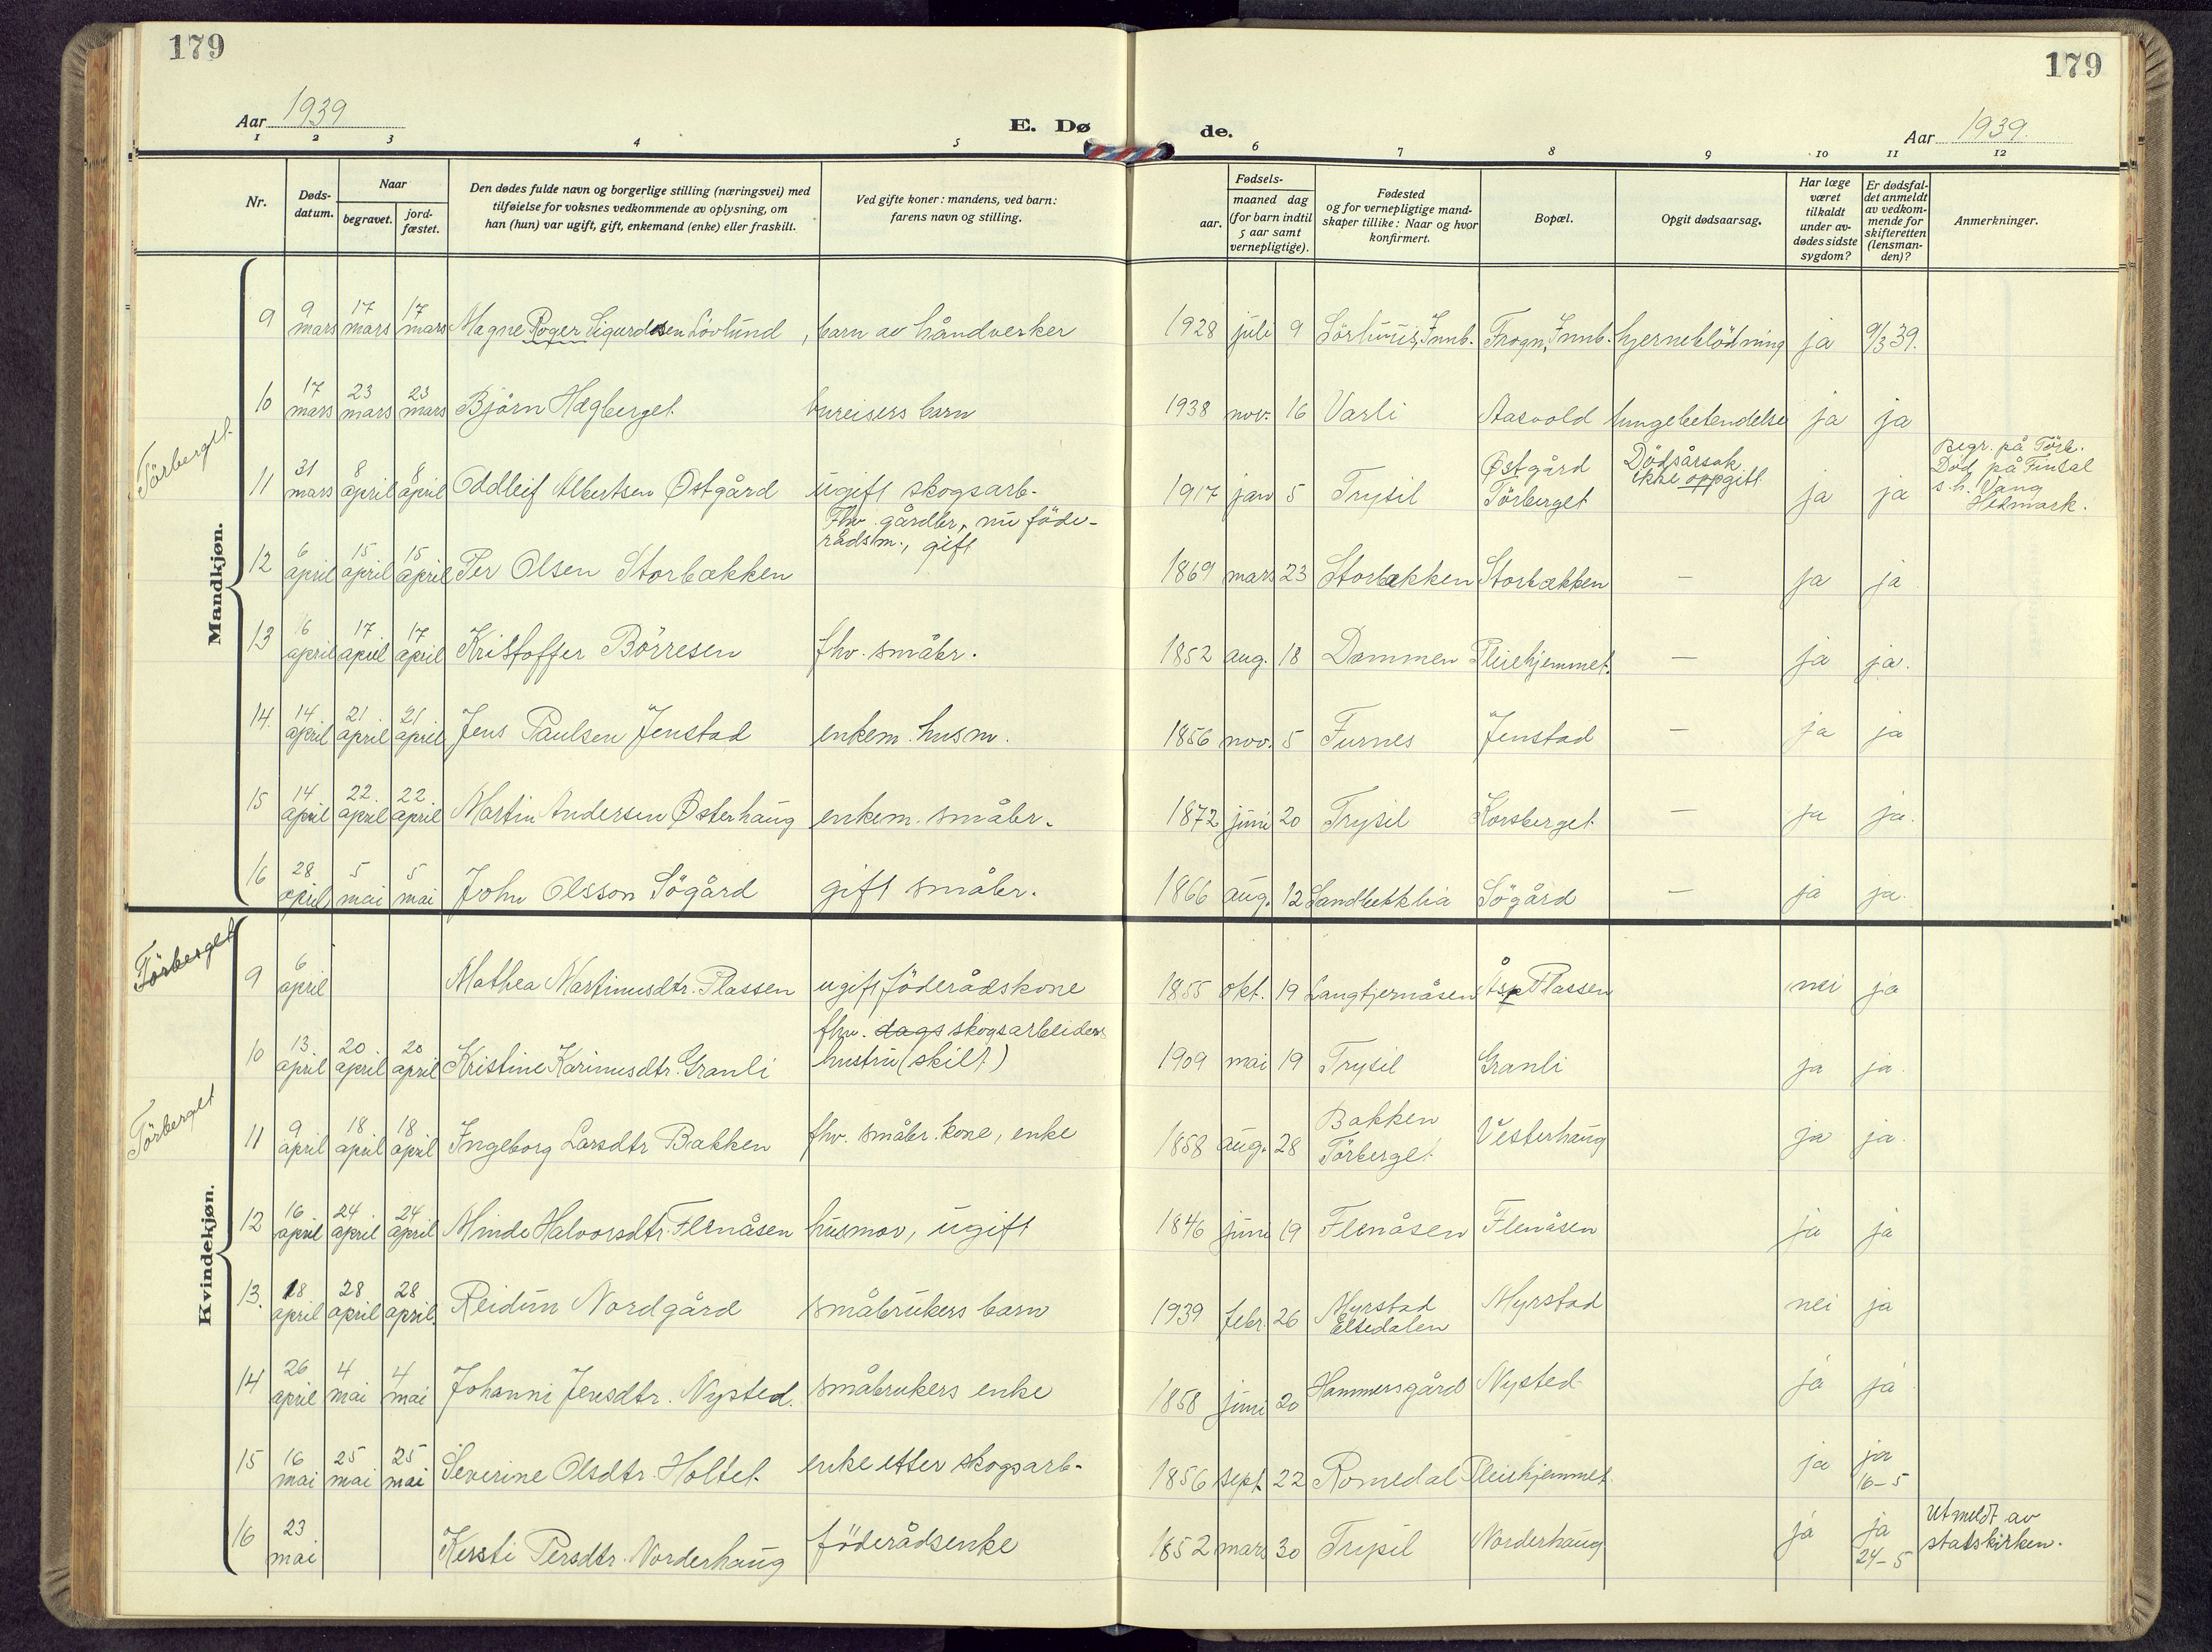 179
179
Aar 1939
E. Dø
de.
Aar 1939.
1 2 3 4 5 6 7 8 9 10 11 12
Nr.
Døds-
datum.
Naar
begravet.
jord-
fæstet.
Den dødes fulde navn og borgerlige stilling (næringsvei) med
tilføielse for voksnes vedkommende av oplysning, om
han (hun) var ugift, gift, enkemand (enke) eller fraskilt.
Ved gifte koner: mandens, ved barn:
farens navn og stilling.
Fødsels-
aar.
maaned dag
(for barn indtil
5 aar samt
vernepligtige).
Fødested
og for vernepligtige mand-
skaper tillike: Naar og hvor
konfirmert.
Bopæl.
Opgit dødsaarsag.
Har læge
været
tilkaldt
under av-
dødes sidste
sygdom?
Er dødsfal-
det anmeldt
av vedkom-
mende for
skifteretten
(lensman-
den)?
Anmerkninger.
Mandkjøn.
9 9 mars 17 mars 17 mars Magne Roger Sigurdsen Lövlund, barn av håndverker 1928 juli 9 Sörhuus, Innb. Frogn, Innb. hjerneblödning ja 9/3 39.
10 17 mars 23 mars 23 mars Björn Hagberget bureisers barn 1938 nov. 16 Varli Aasvold lungebetendelse ja ja
Törberget
11 31 mars 8 april 8 april Oddleif Albertsen Østgård ugift skogsarb. 1917 jan 5 Trysil Østgård Törberget Dödsårsak ikke oppgitt ja ja Begr. på Törb. Död på Finsal s.h. Vang Hedmark.
12 6 april 15 april 15 april Per Olsen Storbækken Fhv. gårdbr, nu föde-
rådsm., gift 1869 mars 23 Storbækken Storbækken — ja ja
13 6 april 17 april 17 april Kristoffer Börresen fhv. småbr. 1852 aug. 18 Dammen Pleiehjemmet. — ja ja.
14. 14 april 21 april 21 april Jens Paulsen Jenstad enkem. husm. 1856 nov. 5 Furnes Jenstad — ja ja
15 14 april 22 april 22 april Martin Andersen Østerhaug enkem. småbr. 1872 juni 20 Trysil Korsberget — ja ja.
16 28 april 5 mai 5 mai John Olsson Sögård gift småbr. 1866 aug. 12 Landbekklia Sögård — ja ja.
Kvindekjøn.
Törberget
9 6 april Mathea Martinusdtr. Plassen ugift föderådskone 1855 okt. 19 Langtjernåsen Plassen nei ja
10 13 april 20 april 20 april Kristine Karinusdtr. Granli fhv. dags skogsarbeiders
hustru (skilt) 1909 mai 19 Trysil Granli ja ja.
Törberget
11 9 april 18 april 18 april Ingeborg Larsdtr Bakken fhv. småbr. kone, enke 1858 aug. 28 Bakken Törberget Vesterhaug ja ja.
12 16 april 24 april 24 april Minde Halvorsdtr. Flenåsen husmor, ugift 1846 juni 19 Flenåsen Flenåsen ja ja
13. 18 april 28 april 28 april. Reidun Nordgård småbrukers barn 1939 febr. 26 Myrstad Eltedalen Myrstad nei ja
14 26 april 4 mai 4 mai Johanni Jensdtr. Nysted. småbrukers enke 1858 juni 20 Hammersgård Nysted ja ja
15 16 mai 25 mai 25 mai Severine Olsdtr. Holtet enke etter skogsarb. 1856 sept. 22 Romedal Pleiehjemmet. ja ja 16-5
16 23 mai Kersti Persdtr. Norderhaug föderådsenke 1852 mars 30 Trysil Norderhaug ja ja 24-5 Utmeldt av
statskirken.